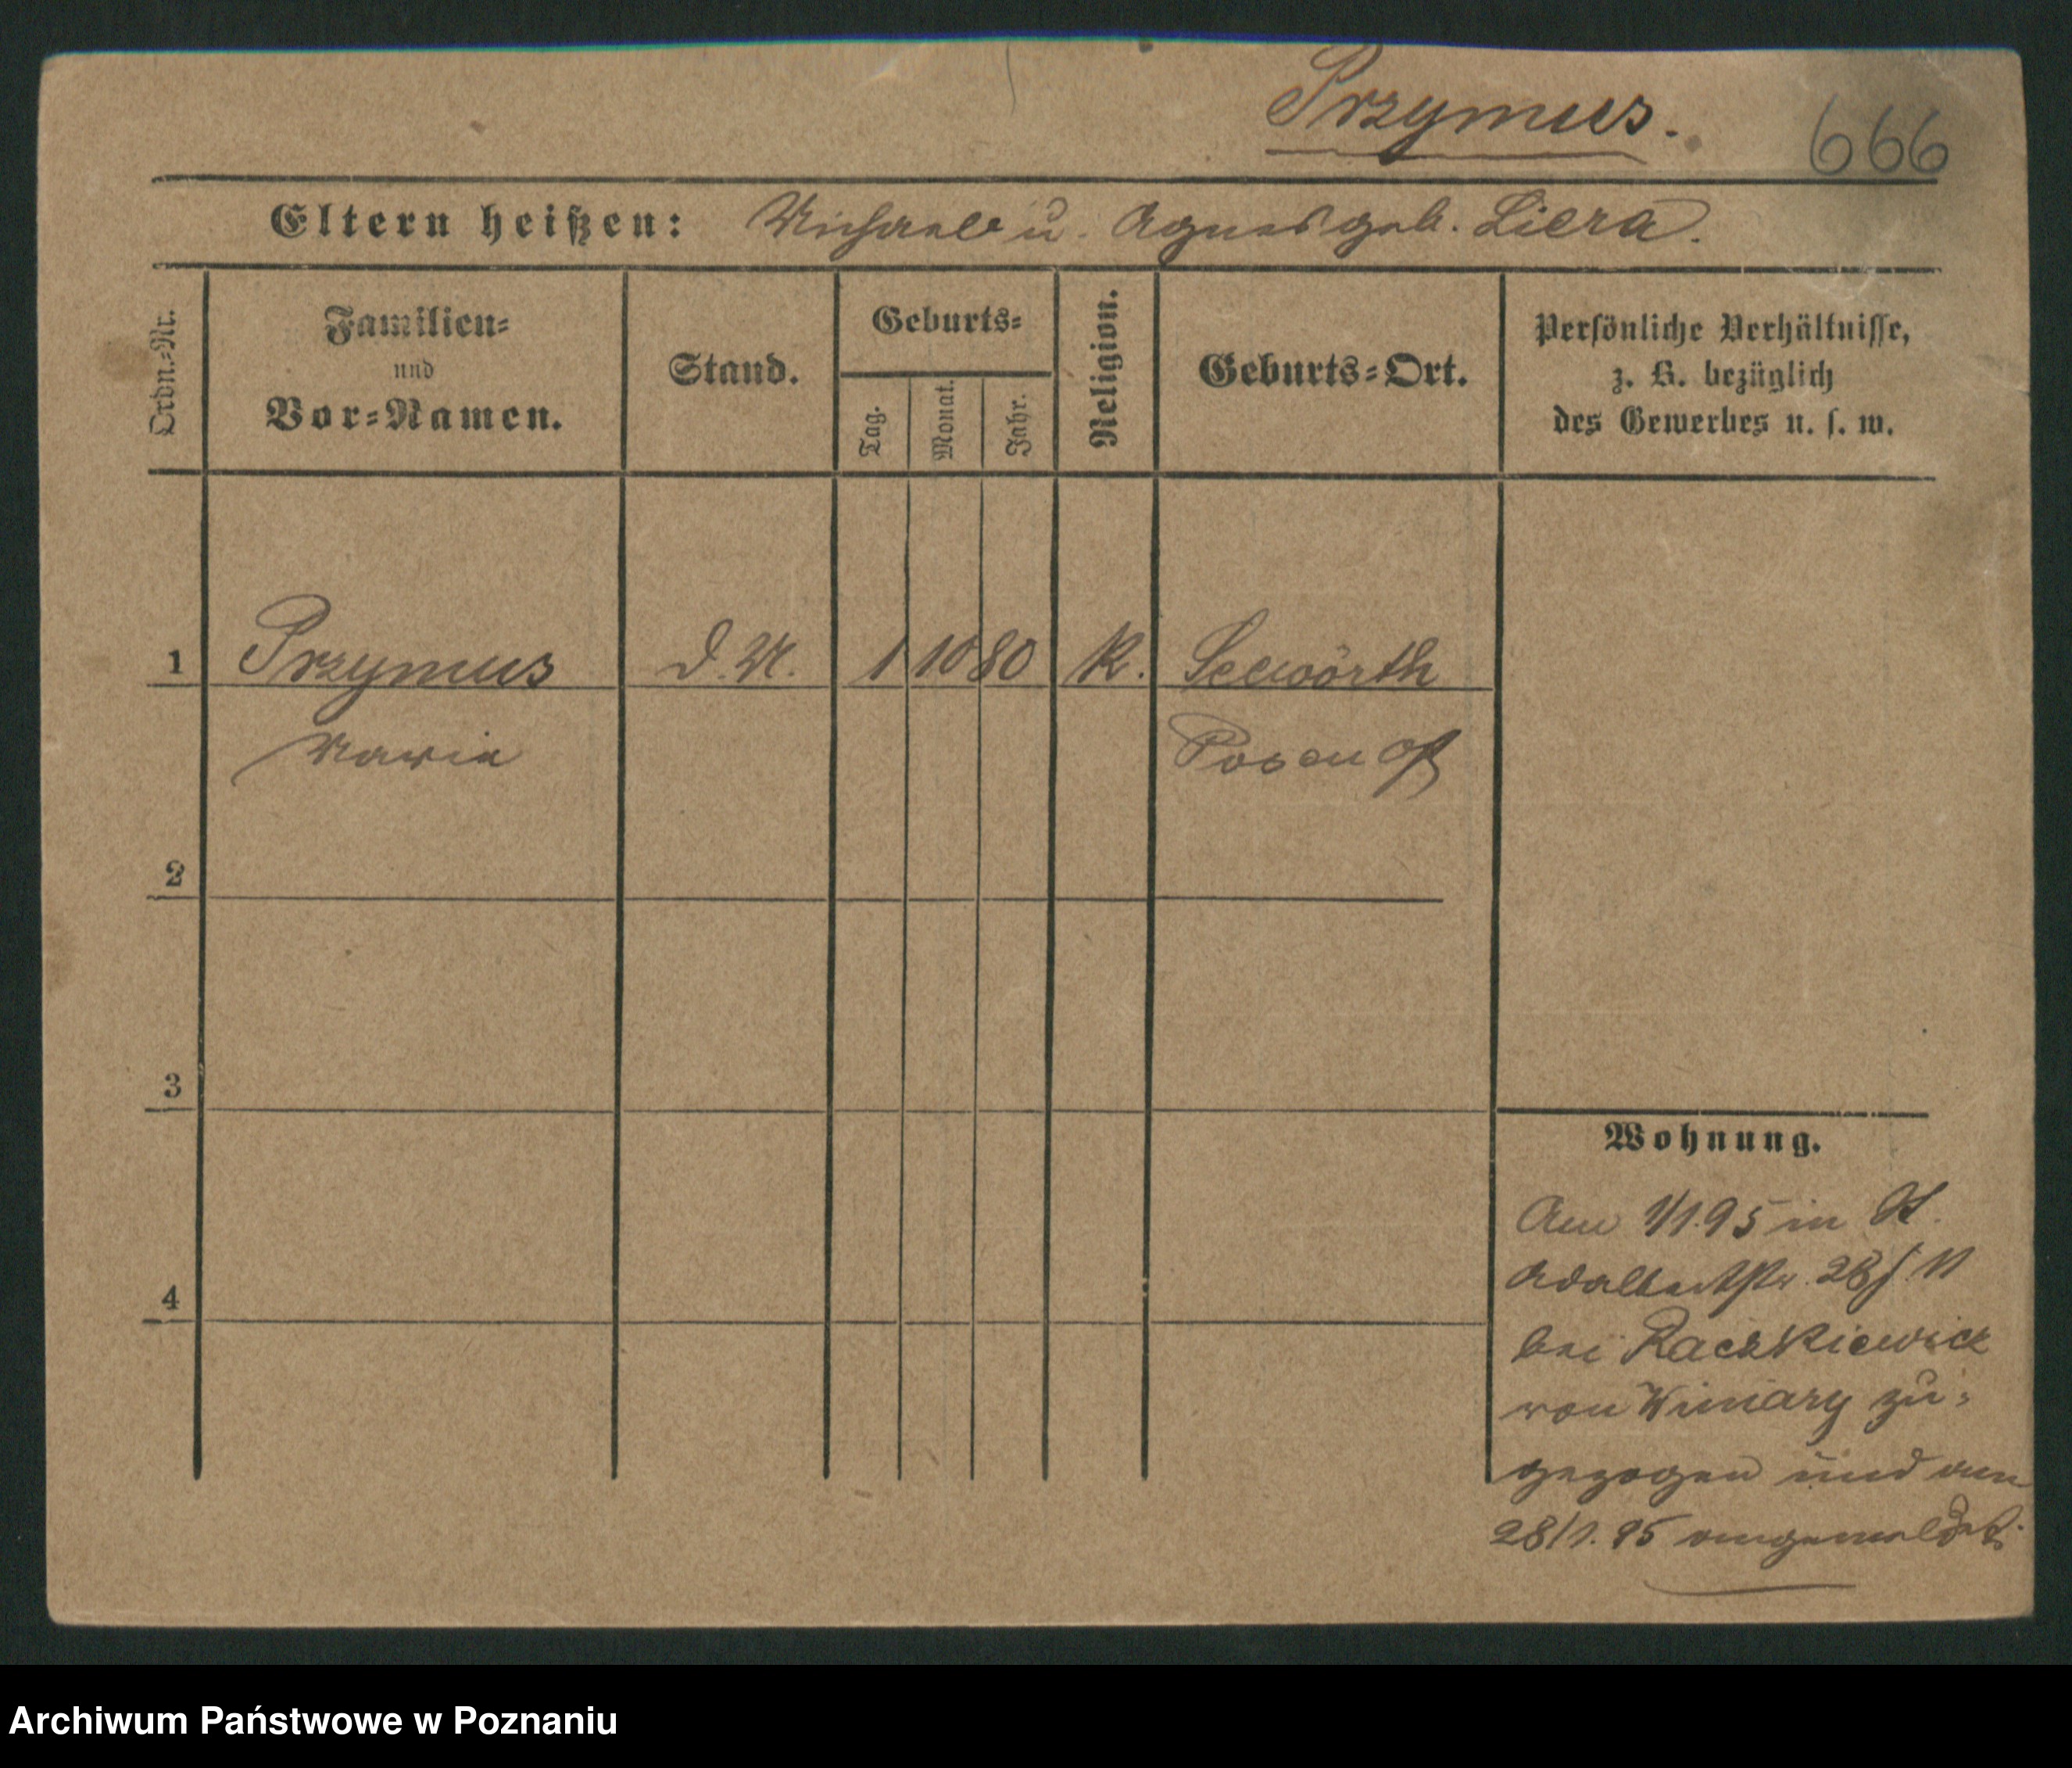 Przymus.
666
Eltern heißen: Michael u. Agnes geb. Liera.
Ordn.-Nr.
Familien-
und
Vor-Namen.
Stand.
Geburts-
Tag.
Monat.
Jahr.
Religion.
Geburts-Ort.
Persönliche Verhältnisse,
z. B. bezüglich
des Gewerbes u. s. w.
1 Przymus d. M. 1 10 80 K. Seewörth
Marie Posen Ost
2
3
4
Wohnung.
Am 1/1.95 in St.
Adalbertstr. 28
bei Raczkiewicz
von Winiary zu-
gezogen und am
28/1.95 angemeldet.
Archiwum Państwowe w Poznaniu